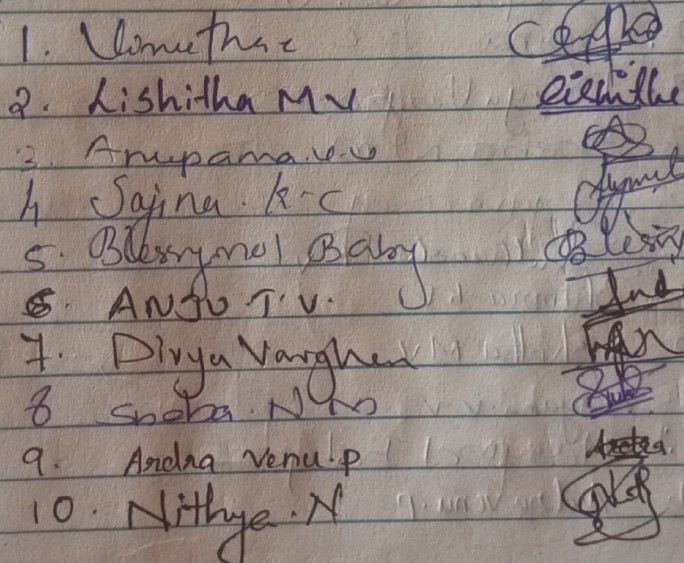 1.
2. Lishitha M V Lishitha
3. Anupama.v.v
4 Sajina. K-C
5. Blessymol Baby Blessy
6. ANJU T.V.
7. Divya Varghese
8 Sheba. N
9. Ardra venu.p Ardra
10. Nithya.N